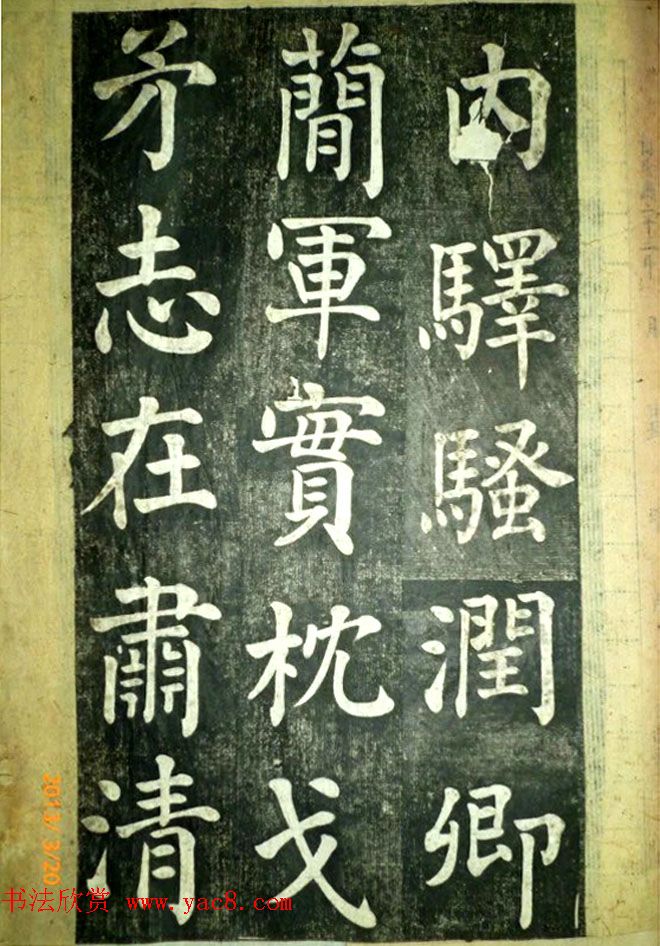 内驛騷潤卿
蕳軍實枕戈
矛志在肅清
2013/ 3/20
书法欣赏 www.yac8.com